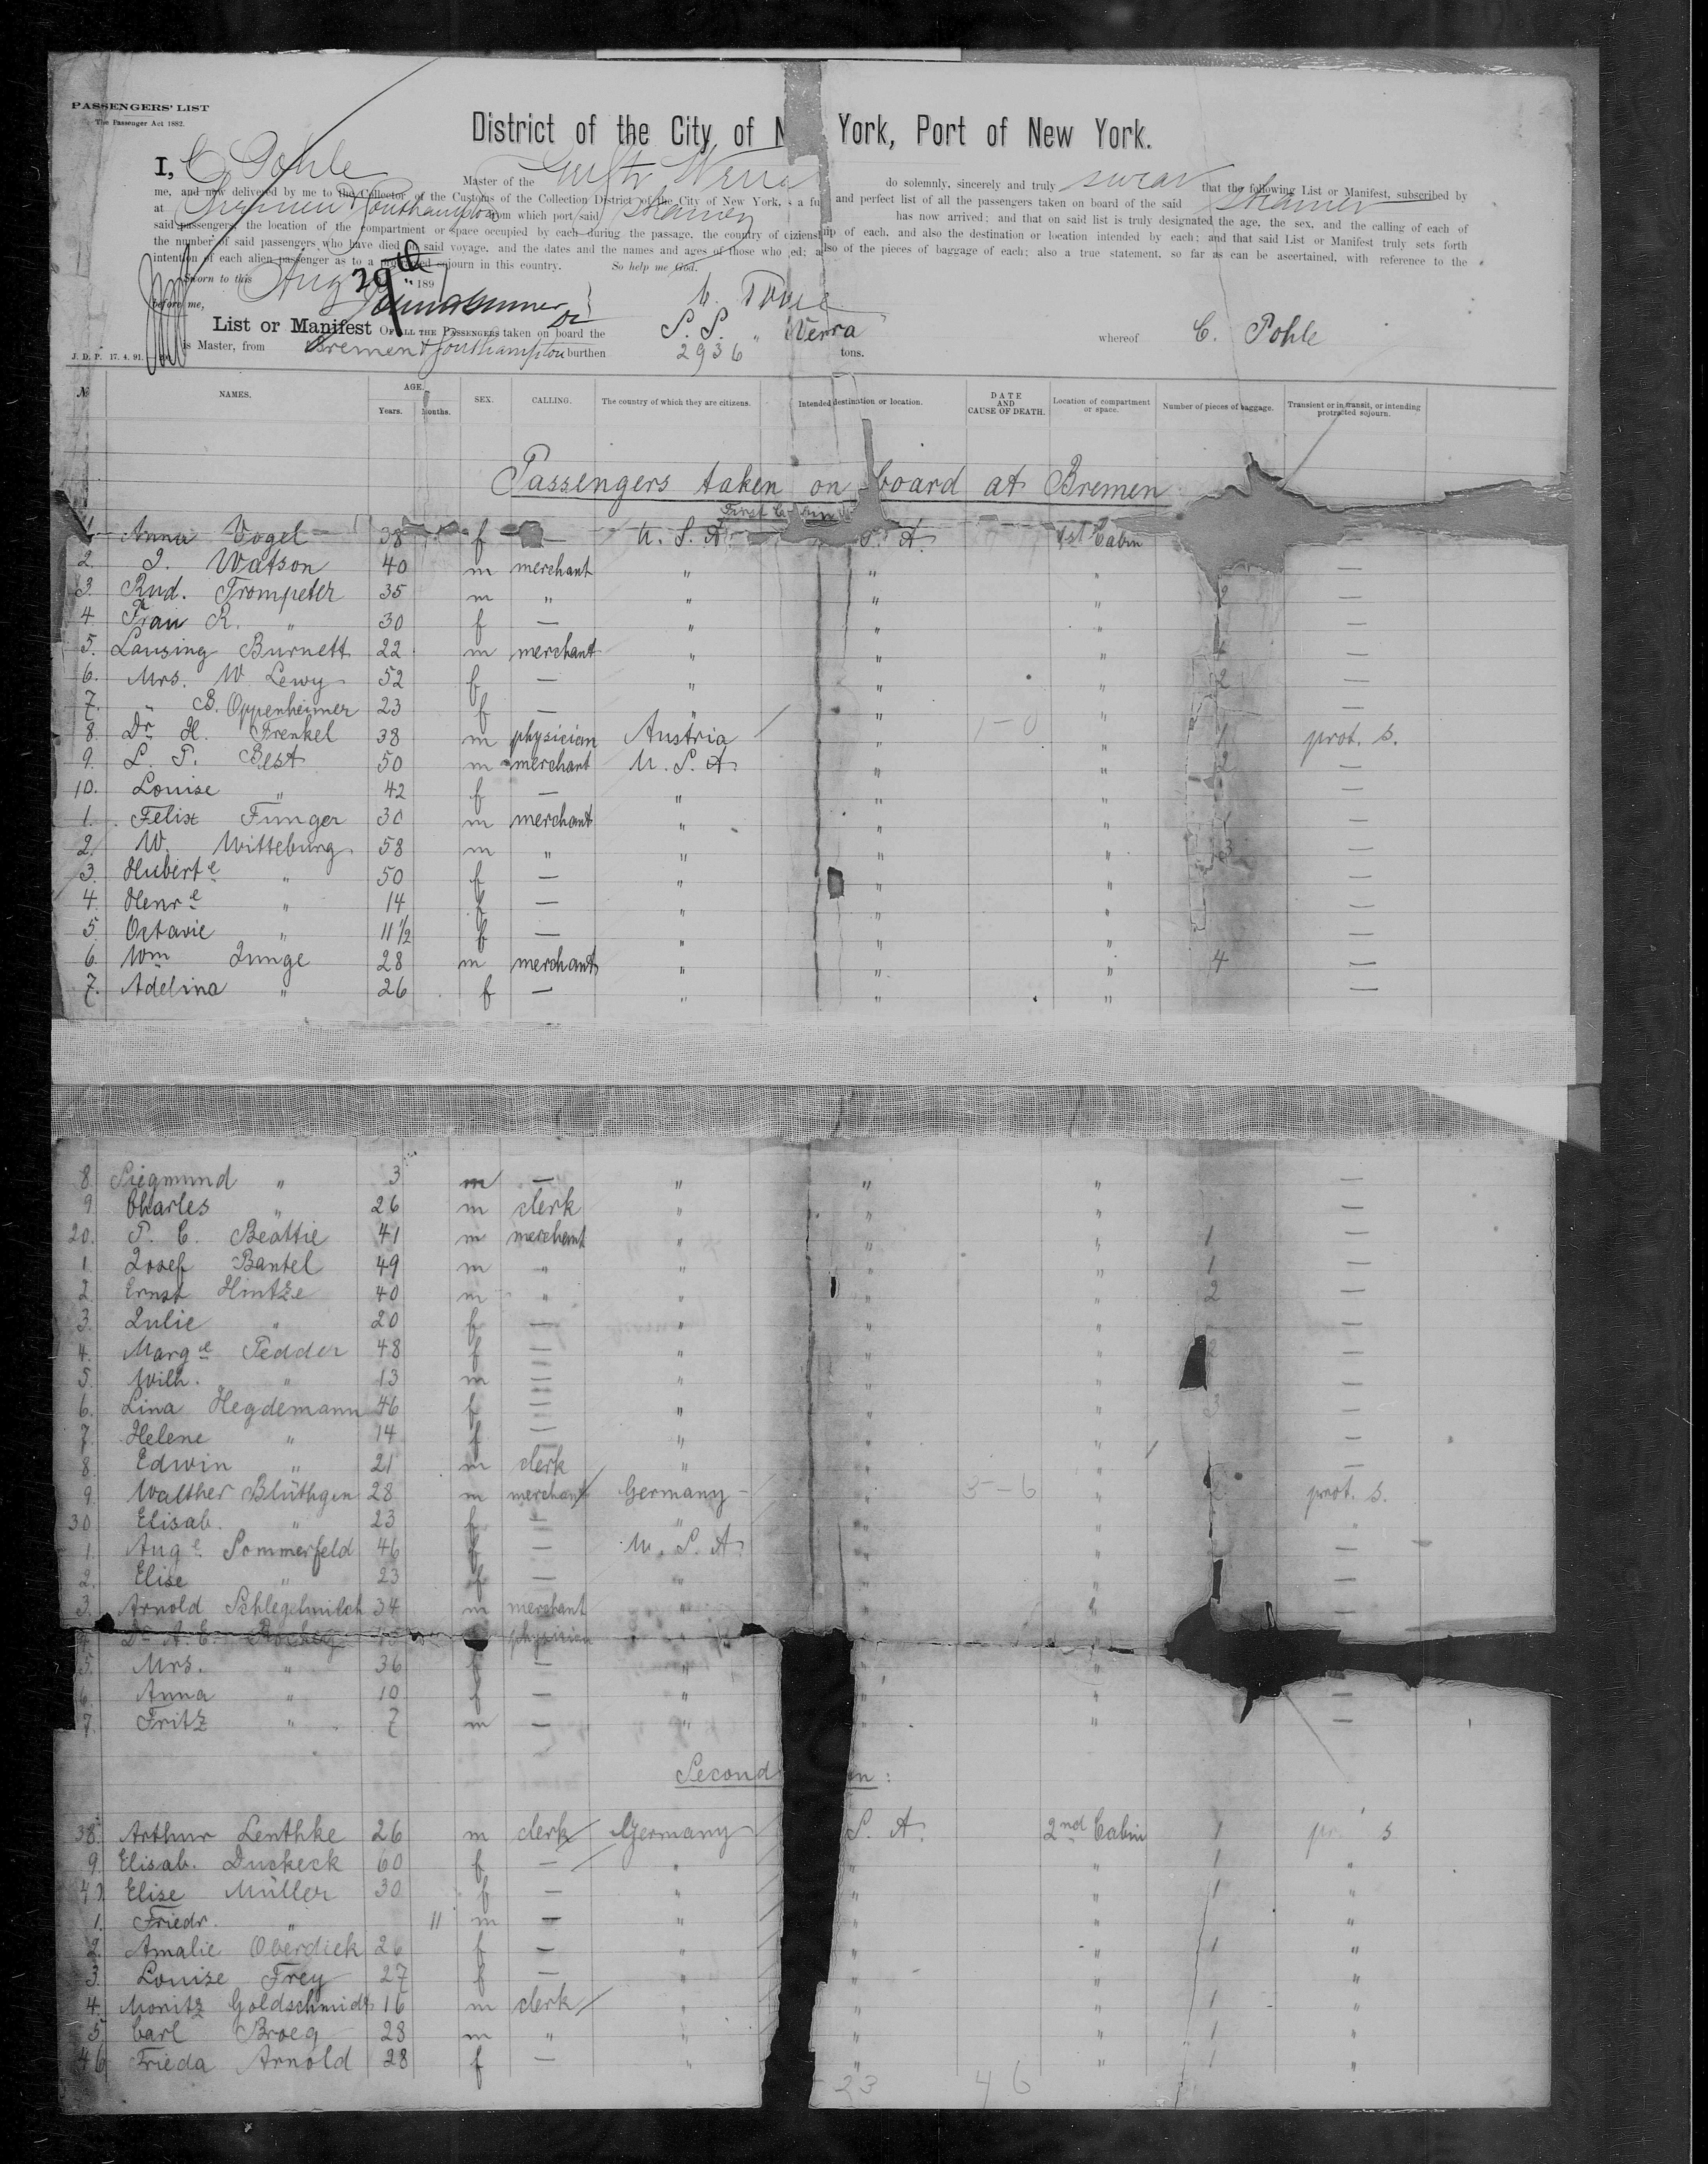 PASSENGERS' LIST
The Passenger Act 1882.
District of the City of N York, Port of New York.
I, C Pohle Master of the Werra do solemnly, sincerely and truly swear that the following List or Manifest, subscribed by
me, and now delivered by me to the Collector of the Customs of the Collection District of the City of New York, is a fu and perfect list of all the passengers taken on board of the said steamer
at Bremen & Southampton from which port said steamer has now arrived; and that on said list is truly designated the age, the sex, and the calling of each of
said passengers, the location of the compartment or space occupied by each during the passage, the country of cizienship of each, and also the destination or location intended by each; and that said List or Manifest truly sets forth
the number of said passengers who have died on said voyage, and the dates and the names and ages of those who ed; also of the pieces of baggage of each; also a true statement, so far as can be ascertained, with reference to the
intention of each alien passenger as to a protracted sojourn in this country. So help me God.
Sworn to this Aug 29th 189
before me,
List or Manifest OF ALL THE PASSENGERS taken on board the S. S. " Werra whereof C. Pohle
is Master, from Bremen & Southampton burthen 2936 tons.
J. D. P. 17. 4. 91.
№ NAMES. AGE. Years. Months. SEX. CALLING. The country of which they are citizens. Intended destination or location. DATE AND CAUSE OF DEATH. Location of compartment or space. Number of pieces of baggage. Transient or in transit, or intending protracted sojourn.
Passengers taken on board at Bremen
First Cabin
1. Anna Vogel 38 f — U. S. A. S. A. 1st Cabin —
2. J. Watson 40 m merchant " " " —
3. Rud. Trompeter 35 m " " " " 2 —
4. Frau R. " 30 f — " " " —
5. Lansing Burnett 22 m merchant " " " 4 —
6. Mrs. W Lewy 52 f — " " " 2 —
7. " B. Oppenheimer 23 f — " " " —
8. Dr. H. Frenkel 38 m physician Austria " 1-0 " 1 prot. s.
9. L. P. Best 50 m merchant U. S. A. " " 2 —
10. Louise " 42 f — " " " —
1. Felix Funger 30 m merchant " " " —
2. W. Witteburg 58 m " " " " 3 —
3. Huberte " 50 f — " " " —
4. Henre " 14 f — " " " —
5. Octavie " 11 1/2 f — " " " —
6. Wm Junge 28 m merchant " " " 4 —
7. Adelina " 26 f — " " " —
8. Siegmund " 3 m — " " " —
9 Charles " 26 m clerk " " " —
20. P. C. Beattie 41 m merchant " " " 1 —
1. Josef Bantel 49 m " " " " 1 —
2. Ernst Hintze 40 m " " " " 2 —
3. Julie " 20 f — " " " —
4. Marge Tedder 48 f — " " " 2 —
5. Wilh. " 13 m — " " " —
6. Lina Hegdemann 46 f — " " " 3 —
7. Helene " 14 f — " " " —
8. Edwin " 21 m clerk " " " —
9. Walther Blüthgen 28 m merchant Germany " 3-6 " 2 prot. s.
30 Elisab. " 23 f — " " " "
1. Auge Sommerfeld 46 f — U. S. A. " " —
2. Elise " 23 f — " " " —
3. Arnold Schlegelmilch 34 m merchant " " " —
4. Dr. A. E. physician " "
5. Mrs. " 36 f — " " "
6. Anna " 10 f — " " " —
7. Fritz " 7 m — " " " —
Second n:
38. Arthur Lenthke 26 m clerk Germany S. A. 2nd Cabin 1 pr. s
9. Elisab. Duckeck 60 f — " " " 1 "
40 Elise Müller 30 f — " " " 1 "
1. Friedr. " 11 m — " " " "
2. Amalie Oberdick 26 f — " " " 1 "
3. Louise Frey 27 f — " " " "
4. Moritz Goldschmidt 16 m clerk " " " 1 "
5 Carl Broeg 28 m " " " " 1 "
46 Frieda Arnold 28 f — " " " 1 "
23 46